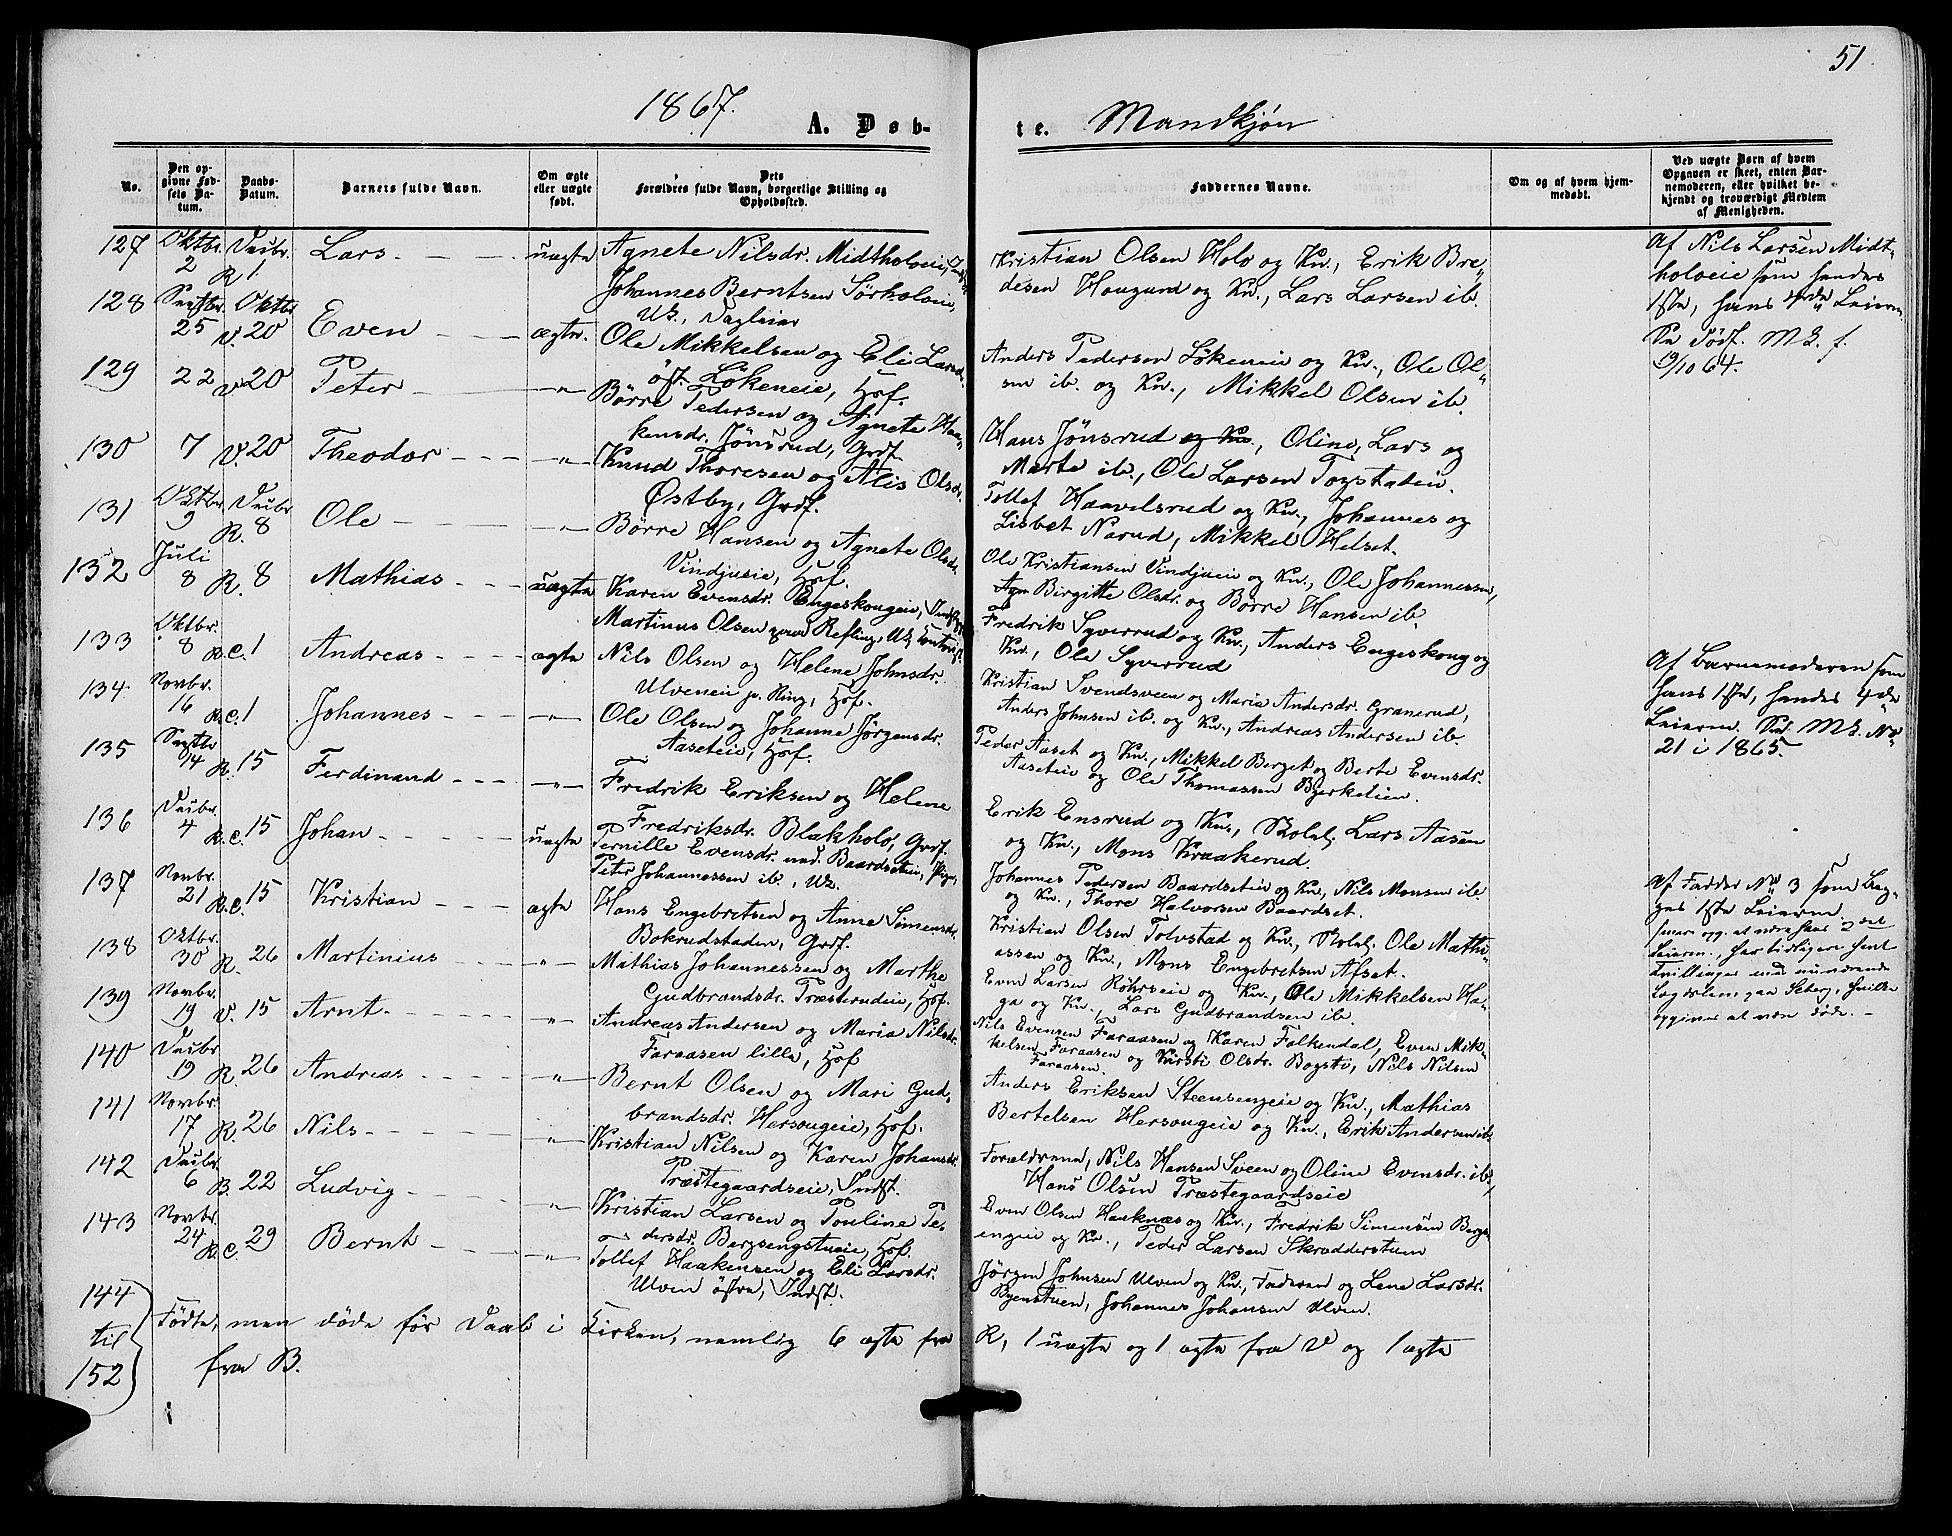 51
1867.
A. Døb-
te. Mandkjøn
No.
Den op-
givne Fød-
sels Da-
tum.
Daabs-
Datum.
Barnets fulde Navn.
Om ægte
eller uægte
født.
Dets
Forældres fulde Navn, borgerlige Stilling og
Opholdssted.
Faddernes Navne.
Om og af hvem hjem-
medøbt.
Ved uægte Børn af hvem
Opgaven er skeet, enten Bar-
nemoderen, eller hvilket be-
kjendt og troværdigt Medlem
af Menigheden.
127 Oktbr. 2 Desbr. R 1 Lars uægte Agnete Nilsdr. Midtholoeie,
Johannes Berntsen Sörholoeie,
Uk., Dagleier
Kristian Olsen Holo og Kn., Erik Bre-
desen Haugund og Kn., Lars Larsen ib.
Af Nils Larsen Midt-
holoeie som hendes
1ste, hans 4de Leierm.
19/10 64.
128 Septbr. 25 Oktbr. V. 20 Even ægte. Ole Mikkelsen og Eli Larsdr.
öst. Lökeneie, Hof.
Anders Pedersen Lökeneie og Kn., Ole Ol-
sen ib. og Kn., Mikkel Olsen ib.
129 22 V 20 Peter " Börre Pedersen og Agnete Haa-
kensdr. Jönsrud, Grdf.
Hans Jönsrud og Kn., Oline, Lars og
Marte ib., Ole Larsen Topstadeie.
130 7 V. 20 Theodor " Knud Thoresen og Alis Olsdr.
Östby, Grdf.
Tollef Haavelsrud og Kn., Johannes og
Lisbet Narud, Mikkel Helset.
131 Oktbr 9 Desbr R. 8 Ole " Börre Hansen og Agnete Olsdr.
Vindjueie, Hof.
Ole Kristiansen Vindjueie og Kn., Ole Johannessen,
Birgitte Olsdr. og Börre Hansen ib.
132 Juli 8 R. 8 Mathias uægte Karen Evensdr. Engeskougeie,
Martinus Olsen Refling, Uk
Fredrik Syverrud og Kn., Anders Engeskoug og
Kn., Ole Syverrud
Af Barnemoderen som
hans 1ste, hendes 4de
Leierm. No
21 i 1865.
133 Oktbr. 8 R.C. 1 Andreas ægte Nils Olsen og Helene Johnsdr.
Ulveneie Ring, Hof.
Kristian Svendsveen og Maria Andersdr. Granerud,
Anders Johnsen ib. og Kn., Andreas Andersen ib.
134 Novbr. 16 R.C. 1 Johannes " Ole Olsen og Johanne Jörgensdr.
Aaseteie, Hof.
Peder Aaset og Kn., Mikkel Berget og Berte Evensdr.
Aaseteie og Ole Thomassen Bjerkelien.
135 Septbr 14 R. 15 Ferdinand " Fredrik Eriksen og Helene
Fredriksdr. Blækholo, Grdf.
Erik Ensrud og Kn., Lars Aasen
og Kn., Mons Kraakerud.
136 Desbr. 4 R.C. 15 Johan uægte Pernille Evensdr. Baardseteie, Pige,
Peter Johannessen ib., Uk.
Johannes Pedersen Baardseteie og Kn., Nils Monsen ib.
og Kn., Thore Halvorsen Baardset.
Af Fadder No 3 som Beg-
ges 1ste Leierm.
137 Novbr. 21 R.C. 15 Kristian ægte Hans Engebretsen og Anne Simensdr.
Bokrudstaden, Grdf.
Kristian Olsen Tolvstad og Kn., Ole Mathi-
assen og Kn., Mons Engebretsen Afset.
138 Oktbr. 30 R. 26 Martinius " Mathias Johannessen og Marthe
Gudbrandsdr. Præsterudeie, Hof.
Even Larsen Röhrseie og Kn., Ole Mikkelsen Ha-
ga og Kn., Lars Gudbrandsen ib.
139 Novbr. 19 V. 15 Arnt " Andreas Andersen og Maria Nilsdr.
Faraasen lille, Hof
Nils Evensen Faraasen og Karen Falkendal, Even Mik-
kelsen Faraasen og Kirsti Olsdr. Bogsti, Nils Nilsen
Faraasen.
140 Desbr 19 R. 26 Andreas " Bernt Olsen og Mari Gud-
brandsdr. Hersougeie, Hof.
Anders Eriksen Steensengeie og Kn., Mathias
Bertelsen Hersougeie og Kn., Erik Andersen ib.
141 Novbr. 17 R. 26 Nils " Kristian Nilsen og Karen Johansdr.
Præstegaardseie, Indst.
Forældrene, Nils Hansen Sveen og Oline Evensdr. ib.,
Hans Olsen Præstegaardseie
142 Desbr 6 B. 22 Ludvig " Kristian Larsen og Pouline Pe-
dersdr. Bergsengstueie, Hof.
Even Olsen Haaknæs og Kn., Fredrik Simensen Bergs-
engeie og Kn., Peder Larsen Skrædderstuen
143 Novbr. 24 R.C. 29 Bernt " Tollef Haakensen og Eli Larsdr.
Ulven östre, Indst.
Jörgen Johnsen Ulven og Kn., Faderen og Lene Larsdr.
Byenstuen, Johannes Johansen Ulven.
144
til
152
Födte, men döde för Daab i Kirken, nemlig 6 ægte fra R, 1 uægte og 1 ægte fra V og 1 ægte
fra B.